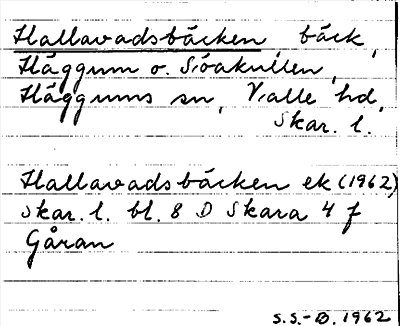 Hallavadsbäcken, bäck,
Häggum o. Sjöakullen,
Häggums sn, Valle hd,
Skar. l.
Hallavadsbäcken ek (1962)
Skar. l. bl. 8 D Skara 4 f
Gåran
S.S.-Ö. 1962